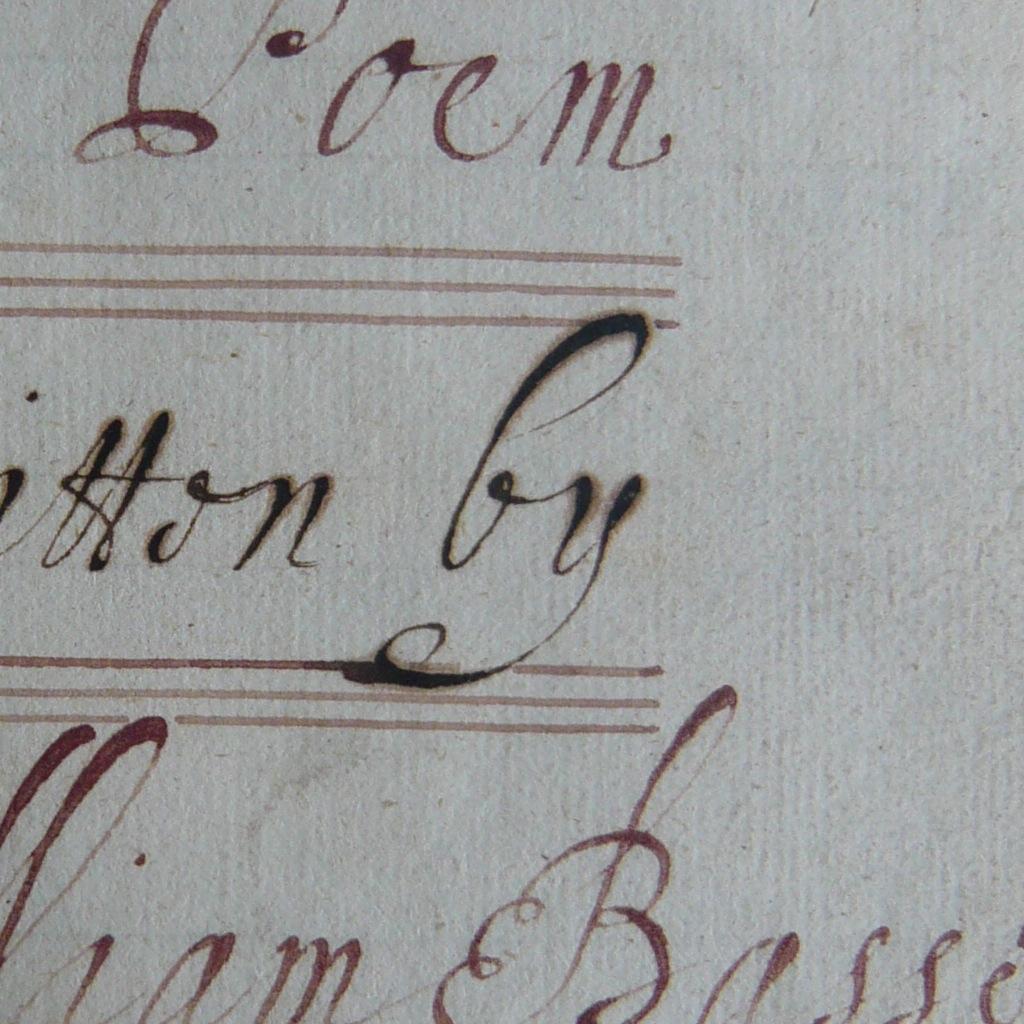 Poem
itton by
lliam Basse